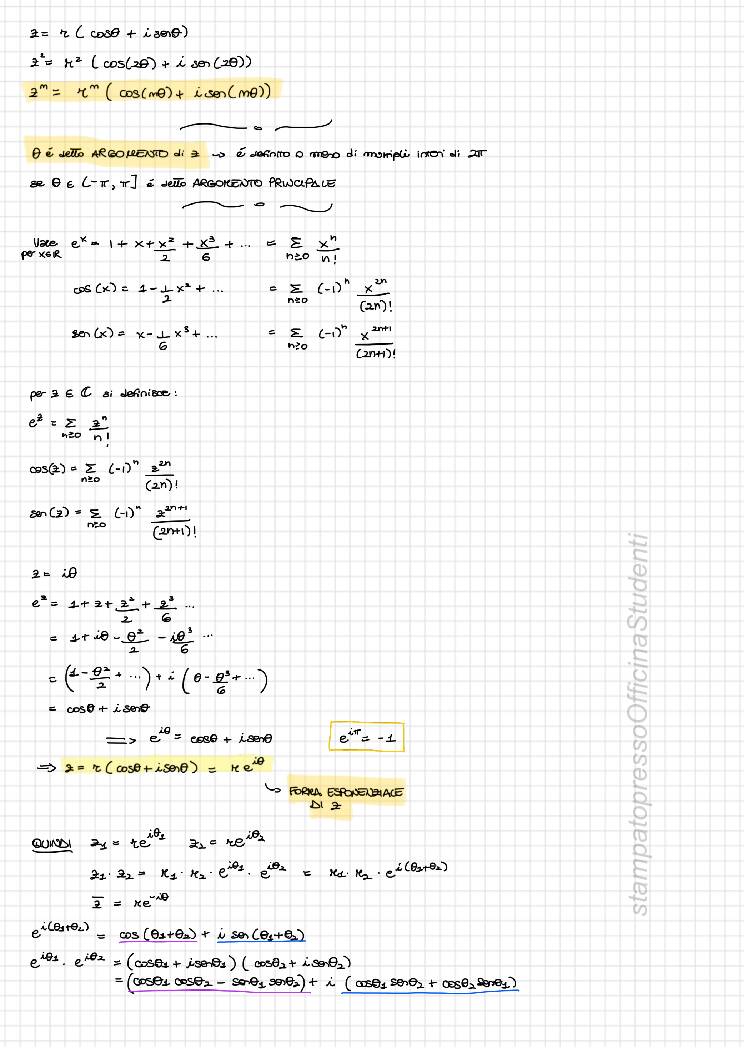 z = r (cosθ + i senθ)
z² = r² (cos(2θ) + i sen(2θ))
zᵐ = rᵐ (cos(mθ) + i sen(mθ))
θ é detto ARGOMENTO di z → é definito a meno di multipli interi di 2π
se θ ∈ (-π, π] é detto ARGOMENTO PRINCIPALE
Vale per x∈R eˣ = 1 + x + x²/2 + x³/6 + ... = Σ n≥0 xⁿ/n!
cos(x) = 1 - 1/2 x² + ... = Σ n≥0 (-1)ⁿ x²ⁿ/(2n)!
sen(x) = x - 1/6 x³ + ... = Σ n≥0 (-1)ⁿ x²ⁿ⁺¹/(2n+1)!
per z ∈ ℂ si definisce:
e^z = Σ n≥0 zⁿ/n!
cos(z) = Σ n≥0 (-1)ⁿ z²ⁿ/(2n)!
sen(z) = Σ n≥0 (-1)ⁿ z²ⁿ⁺¹/(2n+1)!
z = iθ
e^z = 1 + z + z²/2 + z³/6 ...
= 1 + iθ - θ²/2 - iθ³/6 ...
= (1 - θ²/2 + ...) + i (θ - θ³/6 + ...)
= cosθ + i senθ
⟹ e^iθ = cosθ + i senθ e^iπ = -1
⟹ z = r (cosθ + i senθ) = r e^iθ
↳ FORMA ESPONENZIALE
DI z
QUINDI z₁ = re^iθ₁ z₂ = re^iθ₂
z₁ · z₂ = r₁ · r₂ · e^iθ₁ · e^iθ₂ = r₁ · r₂ · e^i(θ₁+θ₂)
z̄ = re^-iθ
e^i(θ₁+θ₂) = cos(θ₁+θ₂) + i sen(θ₁+θ₂)
e^iθ₁ · e^iθ₂ = (cosθ₁ + i senθ₁) (cosθ₂ + i senθ₂)
= (cosθ₁ cosθ₂ - senθ₁ senθ₂) + i (cosθ₁ senθ₂ + cosθ₂ senθ₁)
stampatopressoOfficinaStudenti